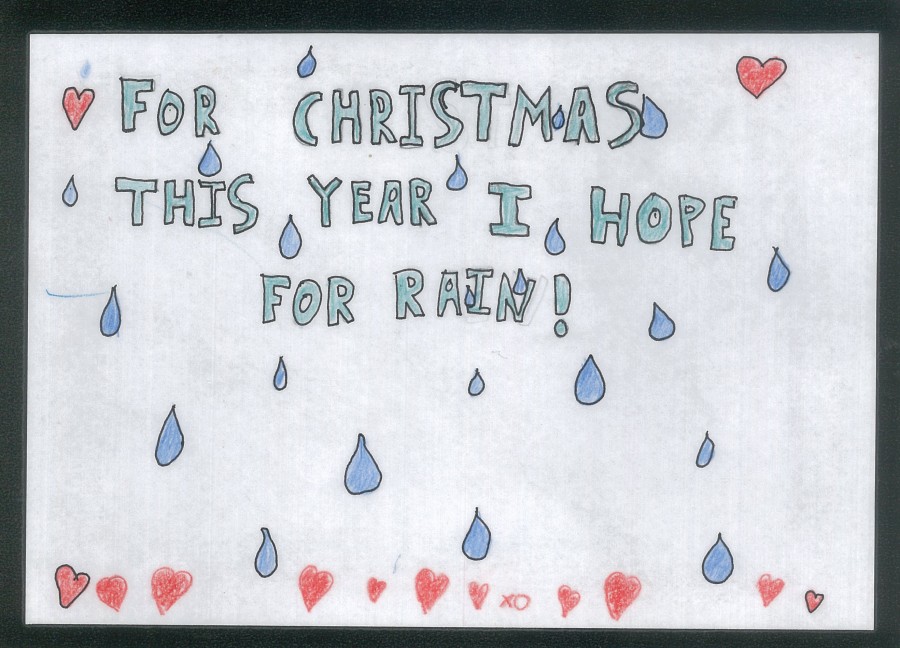 FOR CHRISTMAS
THIS YEAR I HOPE
FOR RAIN!
XO